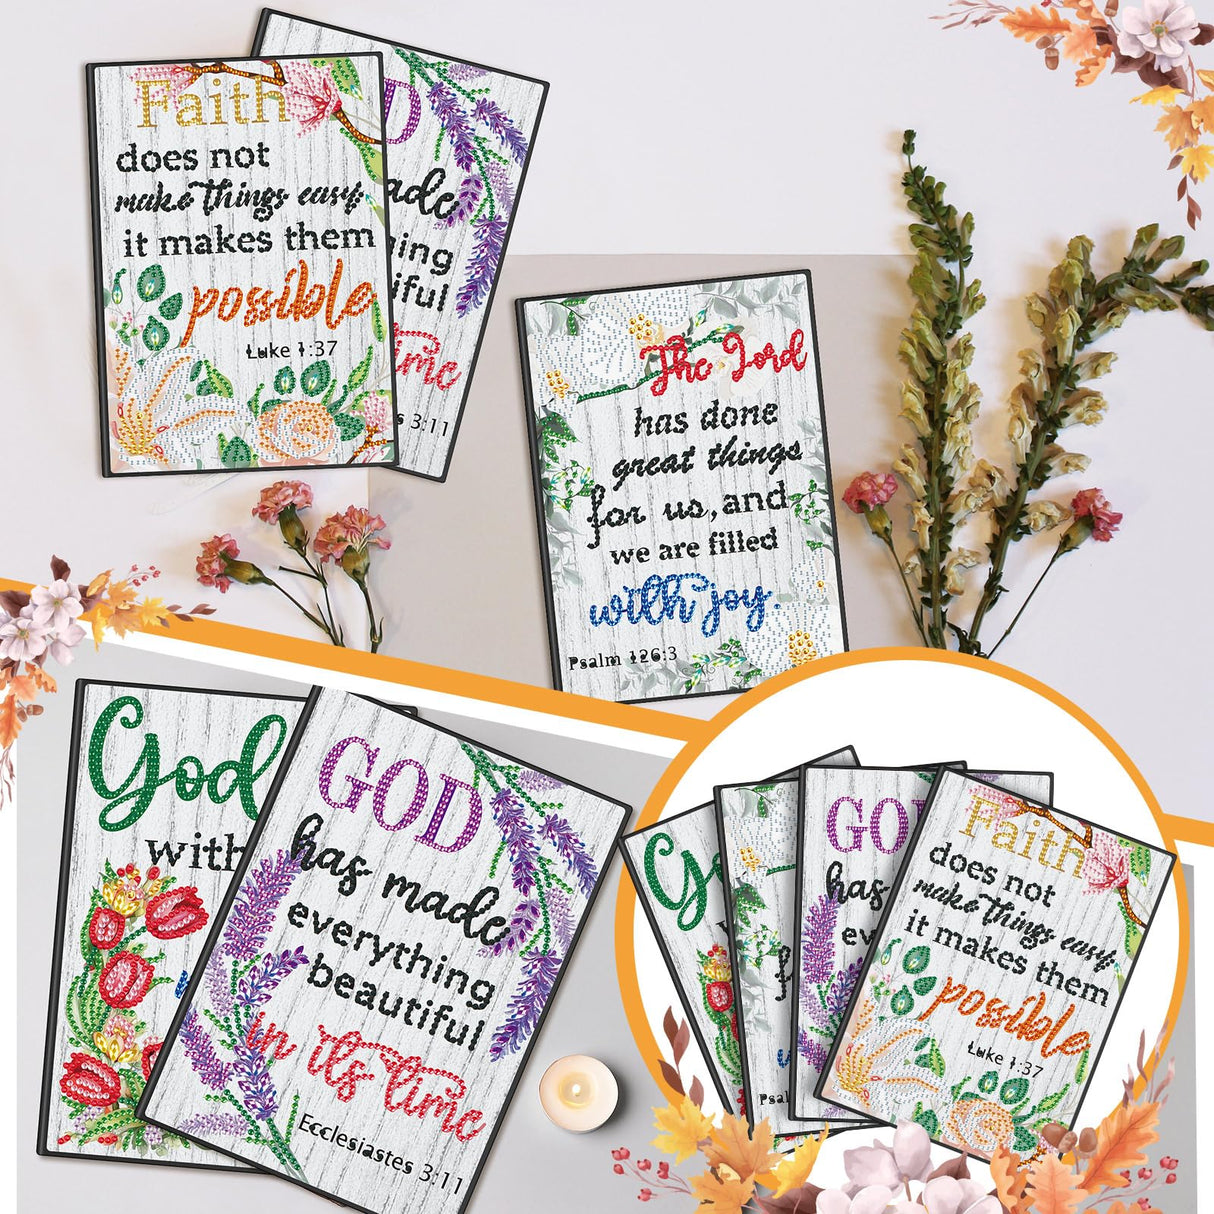 Faith
does not
make things easy
it makes them
possible
Luke 1:37
D
ade
ing
iful
time
3:11
The Lord
has done
great things
for us, and
we are filled
with joy.
Psalm 126:3
God
with
GOD
has made
everything
beautiful
in its time
Ecclesiastes 3:11
G
Psal
GO
has
ev
Faith
does not
make things easy
it makes them
possible
Luke 1:37